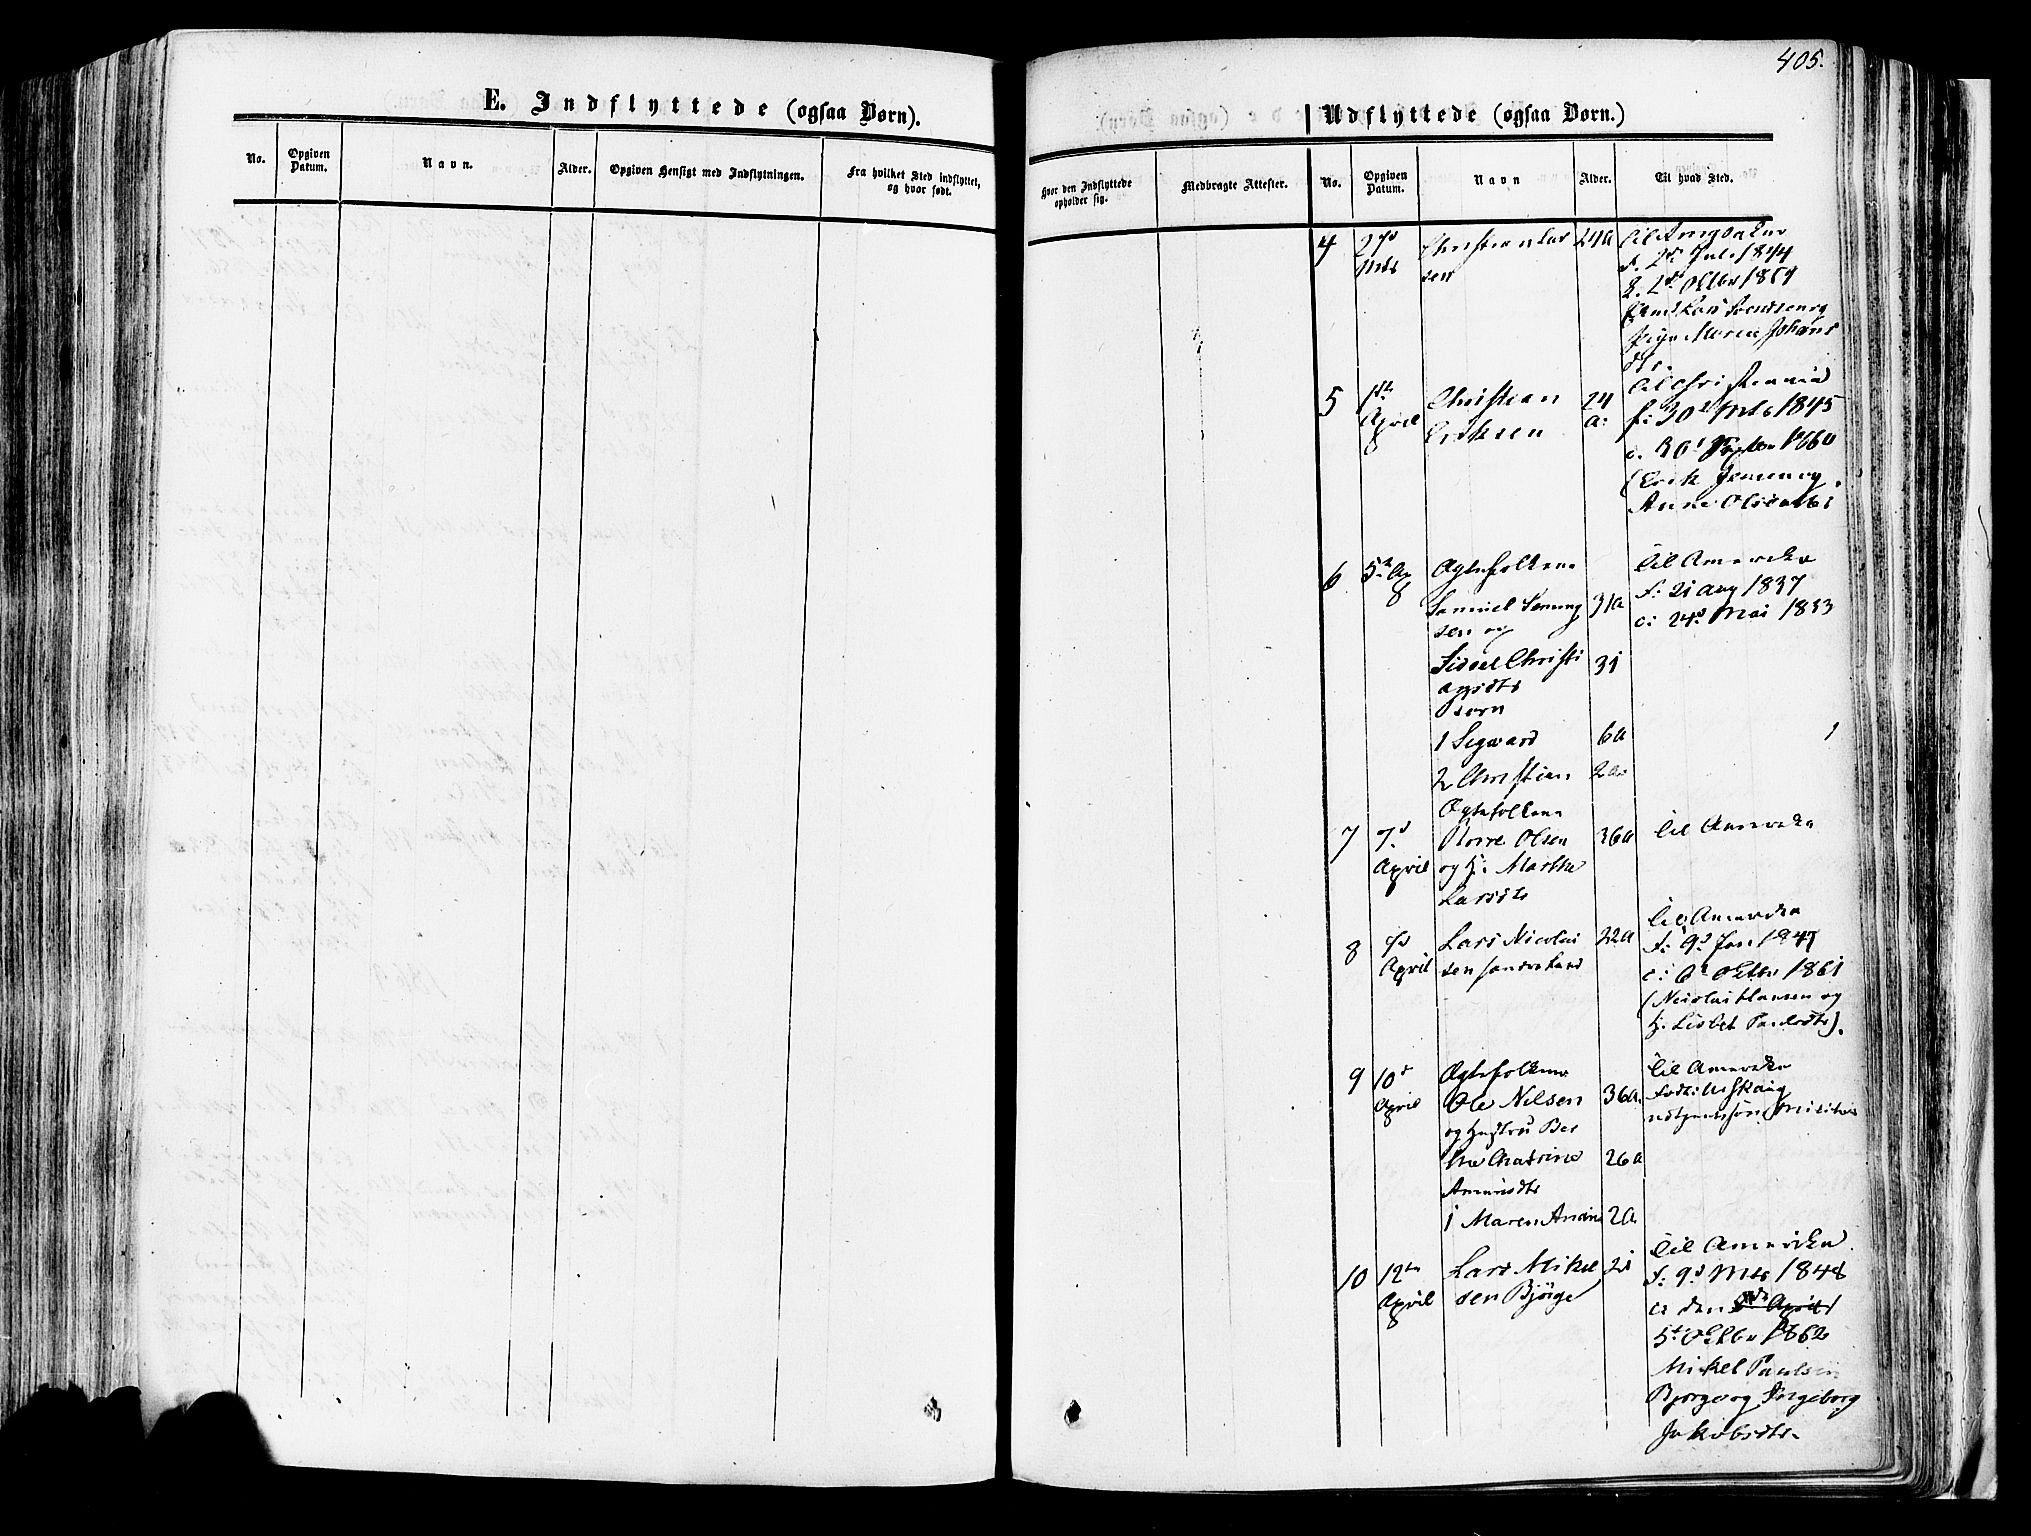 405.
E. Indflyttede (ogsaa Børn).
Udflyttede (ogsaa Børn.)
No.
Opgiven Datum.
Navn.
Alder.
Opgiven Hensigt med Indflytningen.
Fra hvilket Sted indflyttet, og hvor født.
Hvor den Indflyttede opholder sig.
Medbragte Attester.
No.
Opgiven Datum.
Navn
Alder.
Til hvad Sted.
4
27d Mts
Christian Lar
sen
24a
til
f. 2d Juli 1844
2d Oktbr 1859
Maren Johans
dtr.
5
1ste April
Christian
Eriksen
24 a:
til Christiania
f: 30d Mts 1845
c. 30t Septbr 1860
(Erik Jensen og
Anne Olsdatter
6
5te Ap
Ægtefolkene
Samuel
sen og
31a
Sidsel Christi
ansdtr
31
Børn
1 Sigvard
6a
2 Christian
2a
til Amerika
f: 21 aug 1837
c: 24d Mai 1853
7
7d April
Ægtefolkene
Olsen
36a
og H. Marthe
Larsdtr
til Amerika
8
April
Lars Nicolai
sen
22a
til Amerika
f: 9d Jan 1847
c: 6t Oktbr 1861
(Nicolai Hansen og
H. Lisbet
9
10d April
Ægtefolkene
Ole Nilsen
36a.
og Hustru Ber
the Chatrine
26a
Amundsdtr
1 Maren Andrine
2a
til Amerika
10
12te April
Lars Mikel
sen Bjørge
21
til Amerika
f: 9d Mts 1848
c: den April
5te Oktbr 1862
Mikel Paulsen
Bjørge og Ingeborg
Jakobsdtr.